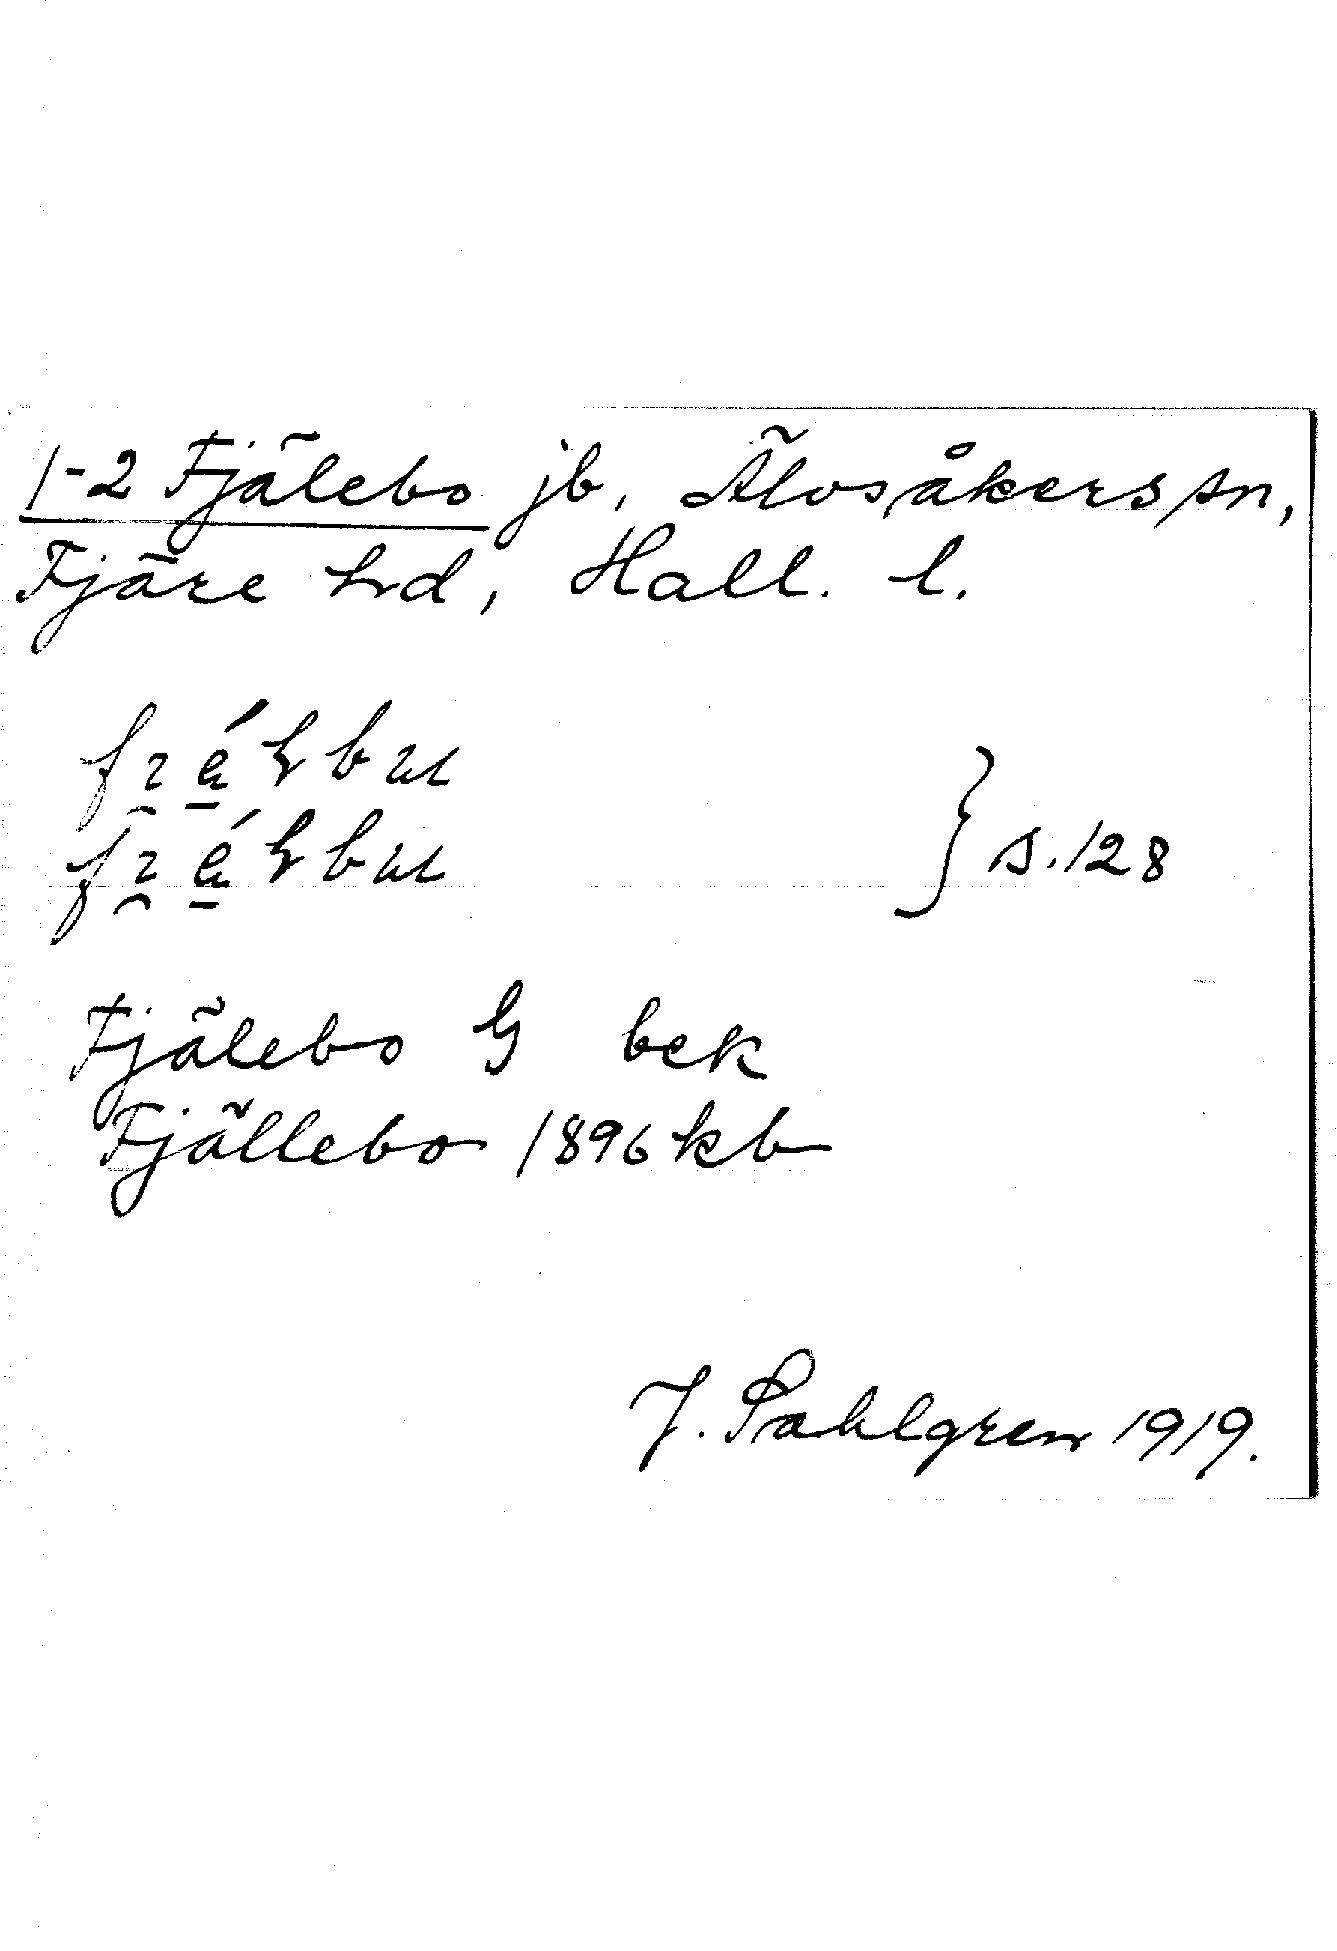 1-2 Fjälebo jb, Älvsåkers sn,
Fjäre hd, Hall. l.
s. 128
Fjälebo G bek
Fjällebo 1896 kb
J. Sahlgren 1919.